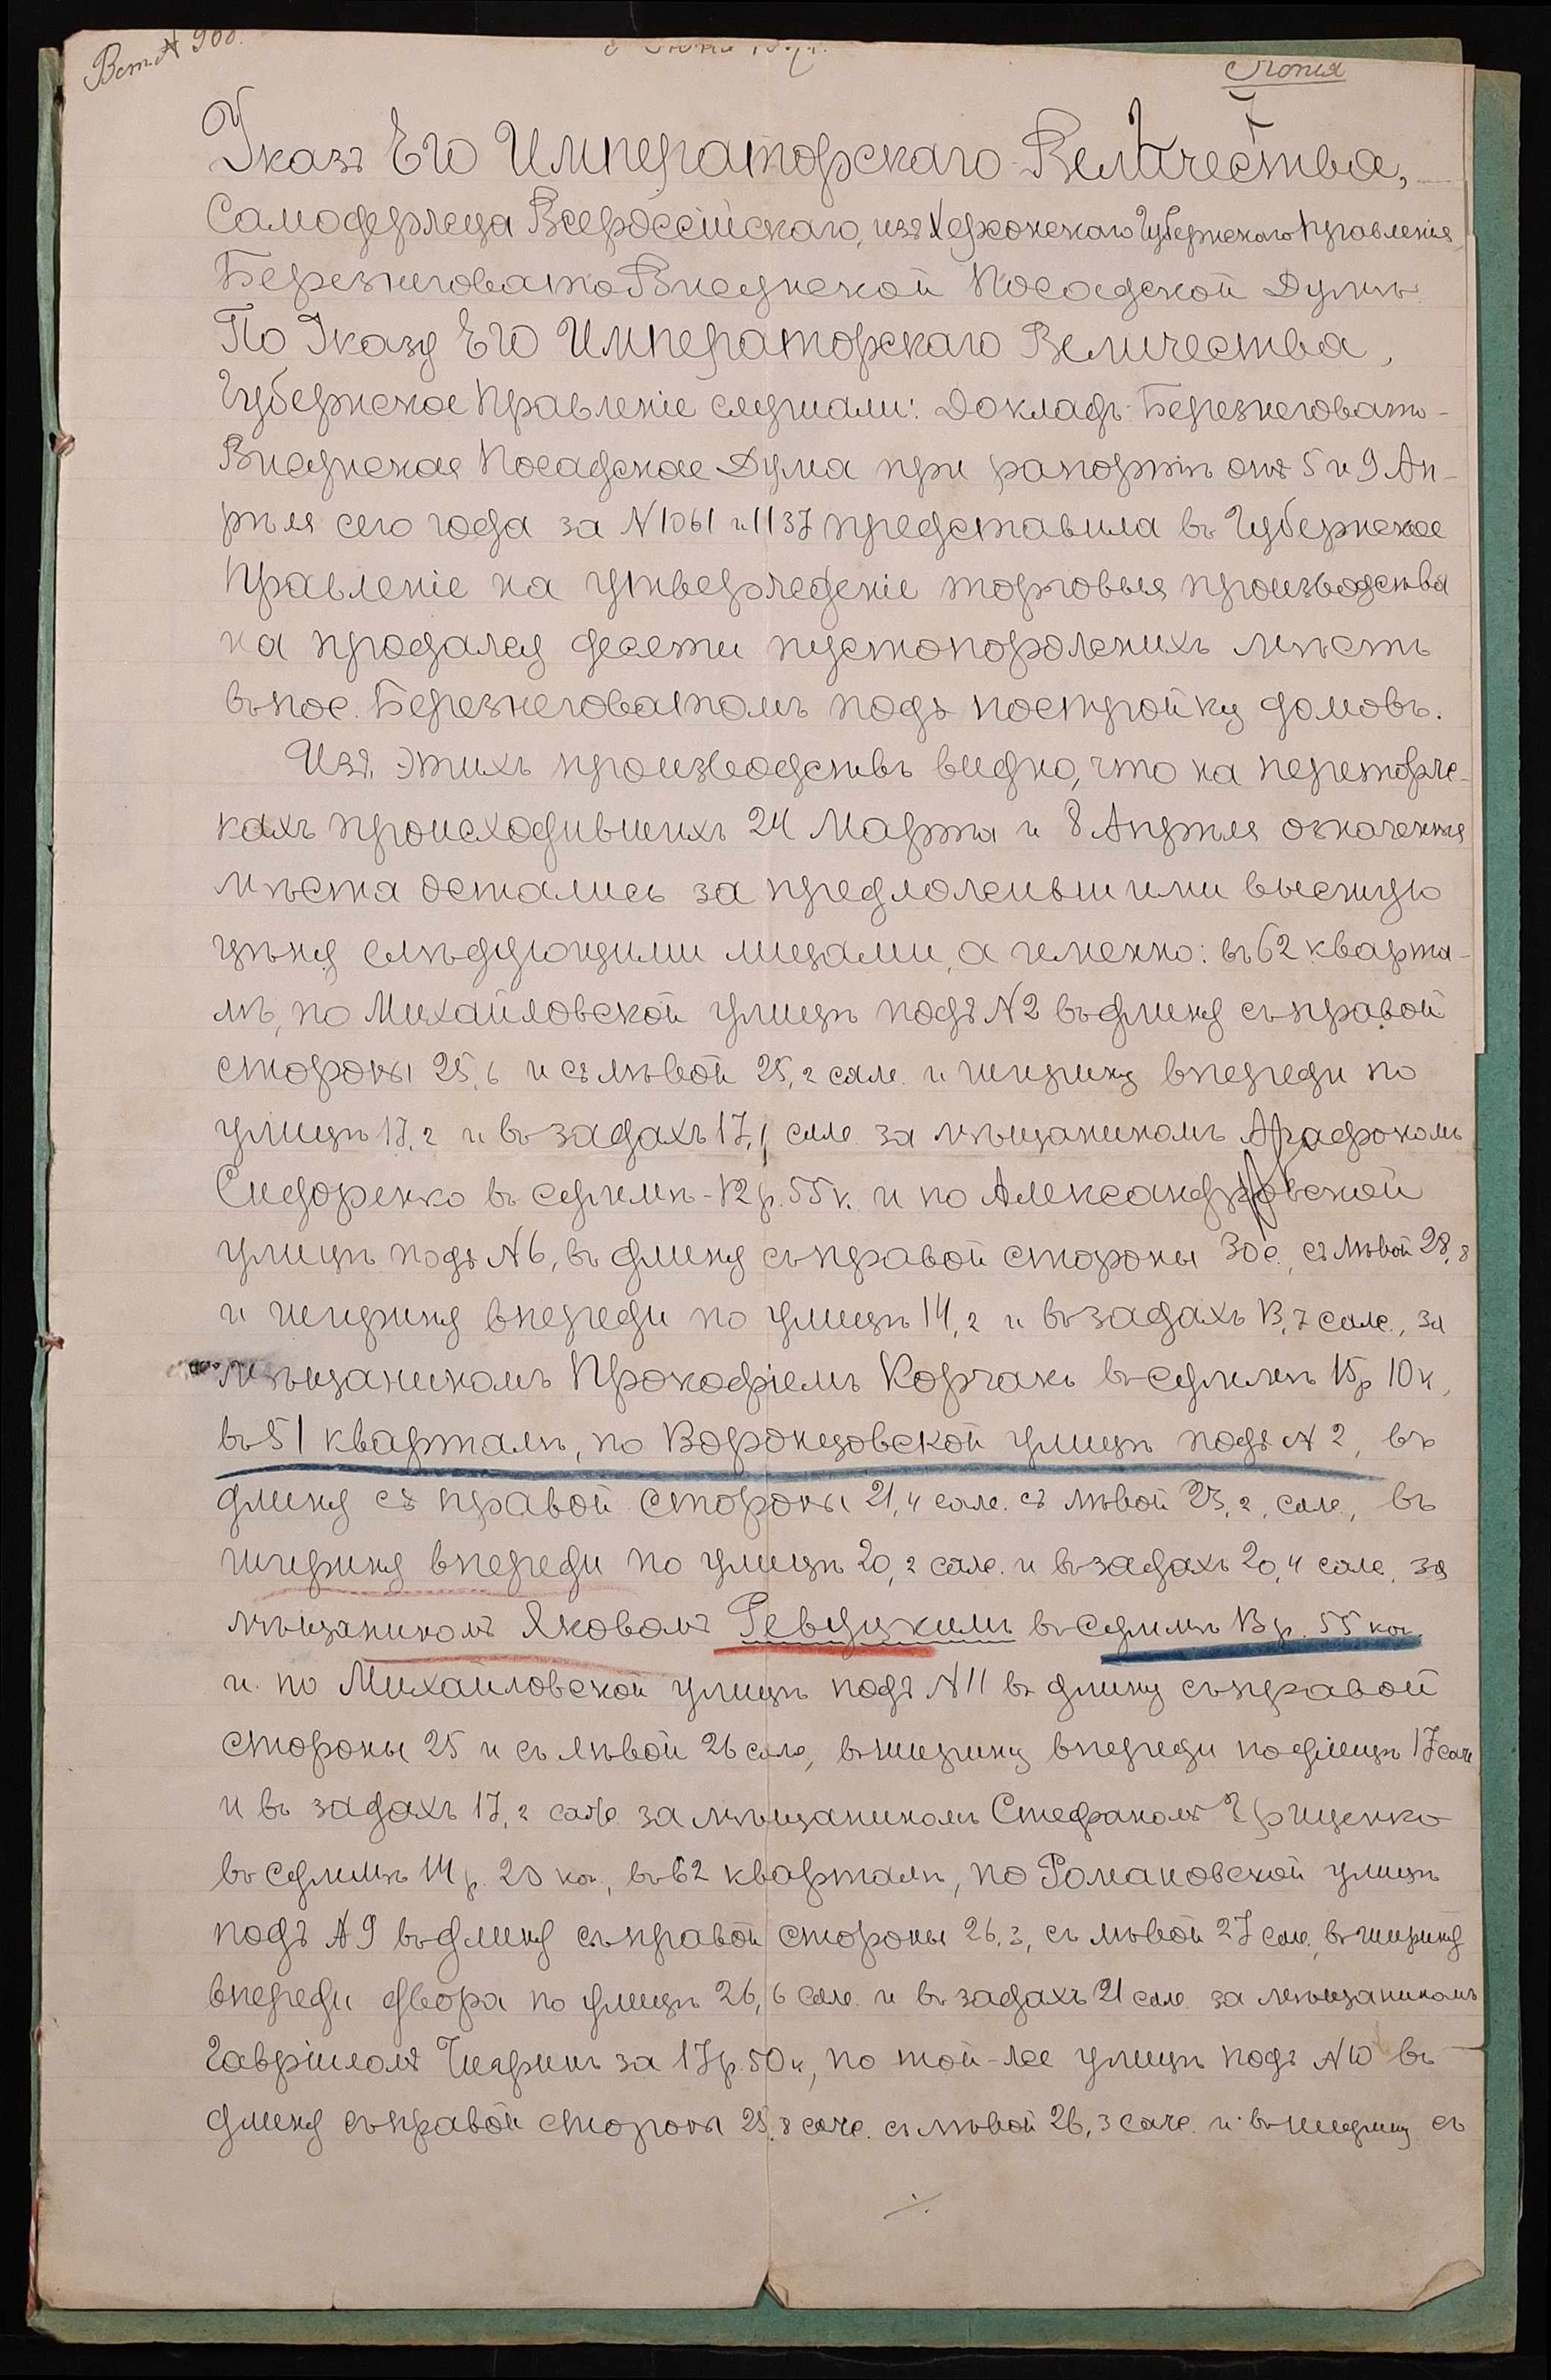 Вст. № 908.
Копія
Указъ Его Императорскаго Величества,
Самодержца Всероссійскаго, изъ Херсонскаго Губернскаго Правленія,
Березнеговато Висунской Посадской Думѣ
По Указу Его Императорскаго Величества,
Губернское Правленіе слушали: Докладъ Березнеговато-
Висунская Посадская Дума при рапортѣ отъ 5 и 9 Ап-
рѣля сего года за N 1061 и 1137 представила въ Губернское
Правленіе на утвержденіе торговыя производства
на продажу десяти пустопорожнихъ мѣстъ
въ пос. Березнеговатомъ подъ постройку домовъ.
Изъ этихъ производствъ видно, что на переторж-
кахъ происходившихъ 24 Марта и 8 Апрѣля означенныя
мѣста остались за предложившими высшую
цѣну слѣдующими лицами, а именно: въ 62 кварта-
лѣ, по Михайловской улицѣ подъ N 2 въ длину съ правой
стороны 25,6 и съ лѣвой 25,2 саж. и ширину впереди по
улицѣ 17,2 и въ задахъ 17,1 саж. за мѣщаниномъ Агафономъ
Сидоренко въ суммѣ - 12 р. 55 к. и по Александровской
улицѣ подъ N 6, въ длину съ правой стороны 30 с., съ лѣвой 28,8
и ширину впереди по улицѣ 14,2 и въ задахъ 13,7 саж., за
мѣщаниномъ Прокофіемъ Корчакъ въ суммѣ 15 р 10 к,
въ 51 кварталѣ, по Воронцовской улицѣ подъ № 2, въ
длину съ правой стороны 21,4 саж. съ лѣвой 23,2, саж., въ
ширину впереди по улицѣ 20,2 саж. и въ задахъ 20,4 саж. за
мѣщаниномъ Яковомъ Ревуцкимъ въ суммѣ 13 р. 55 коп.
и по Михайловской улицѣ подъ N 11 въ длину съ правой
стороны 25 и съ лѣвой 26 саж, въ ширину впереди по улицѣ 17 саж
и въ задахъ 17,2 саж. за мѣщаниномъ Стефаномъ Грищенко
въ суммѣ 14 р. 20 коп., въ 62 кварталѣ, по Романовской улицѣ
подъ № 9 въ длину съ правой стороны 26,3, съ лѣвой 27 саж., въ ширину
впереди двора по улицѣ 26,6 саж. и въ задахъ 21 саж. за мѣщаниномъ
Гавріиломъ за 17 р. 50 к, по той-же улицѣ подъ № 10 въ
длину съ правой стороны 25,8 саж. съ лѣвой 26,3 саж. и въ ширину съ